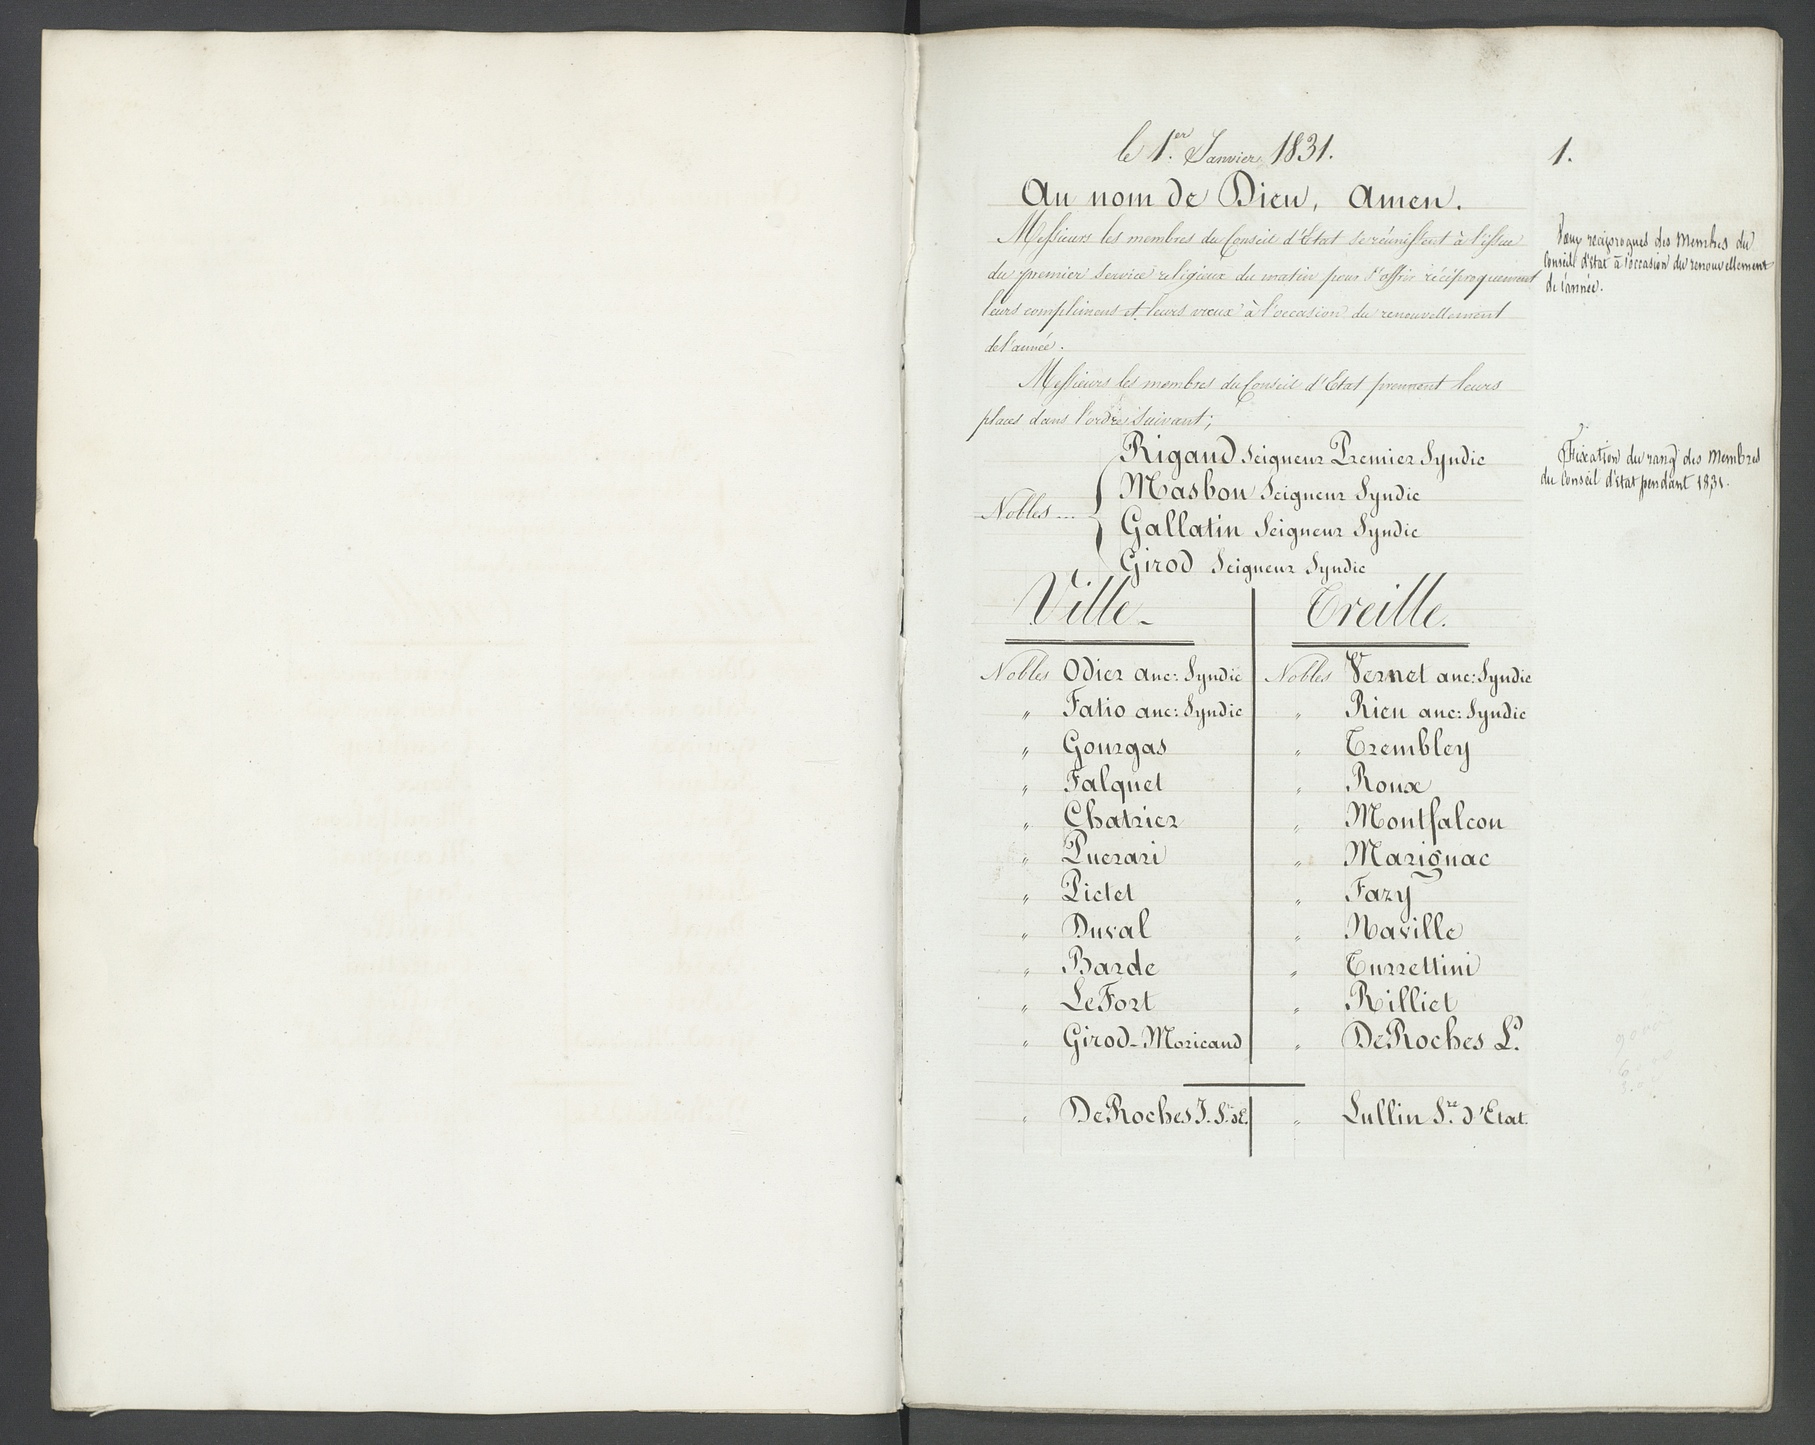 le 1.er Janvier 1831.
1.
Au nom de Dieu, Amen.
Messieurs les membres du Conseil d'Etat se réunissent à l'issue
du premier service religieux du matin pour s'offrir réciproquement
leurs complimens et leurs vœux à l'occasion du renouvellement
de l'année.
Vœux réciproques des Membres du
Conseil d'Etat à l'occasion du renouvellement
de l'année.
Messieurs les membres du Conseil d'Etat prennent leurs
places dans l'ordre suivant;
Fixation du rang des Membres
du Conseil d'Etat pendant 1831.
Nobles
Rigaud Seigneur Premier Syndic
Masbou Seigneur Syndic
Gallatin Seigneur Syndic
Girod Seigneur Syndic
Ville
Nobles Odier anc: Syndic
" Fatio anc: Syndic
" Gourgas
" Falquet
" Chatrier
" Puerari
" Pictet
" Duval
" Barde
" LeFort
" Girod-Moricand
" DeRoches J. S.re d'E.
Treille.
Nobles Vernet anc: Syndic
" Rieu anc: Syndic
" Trembley
" Roux
" Montfalcon
" Marignac
" Fazy
" Naville
" Turrettini
" Rilliet
" DeRoches L.
" Lullin S.re d'Etat.